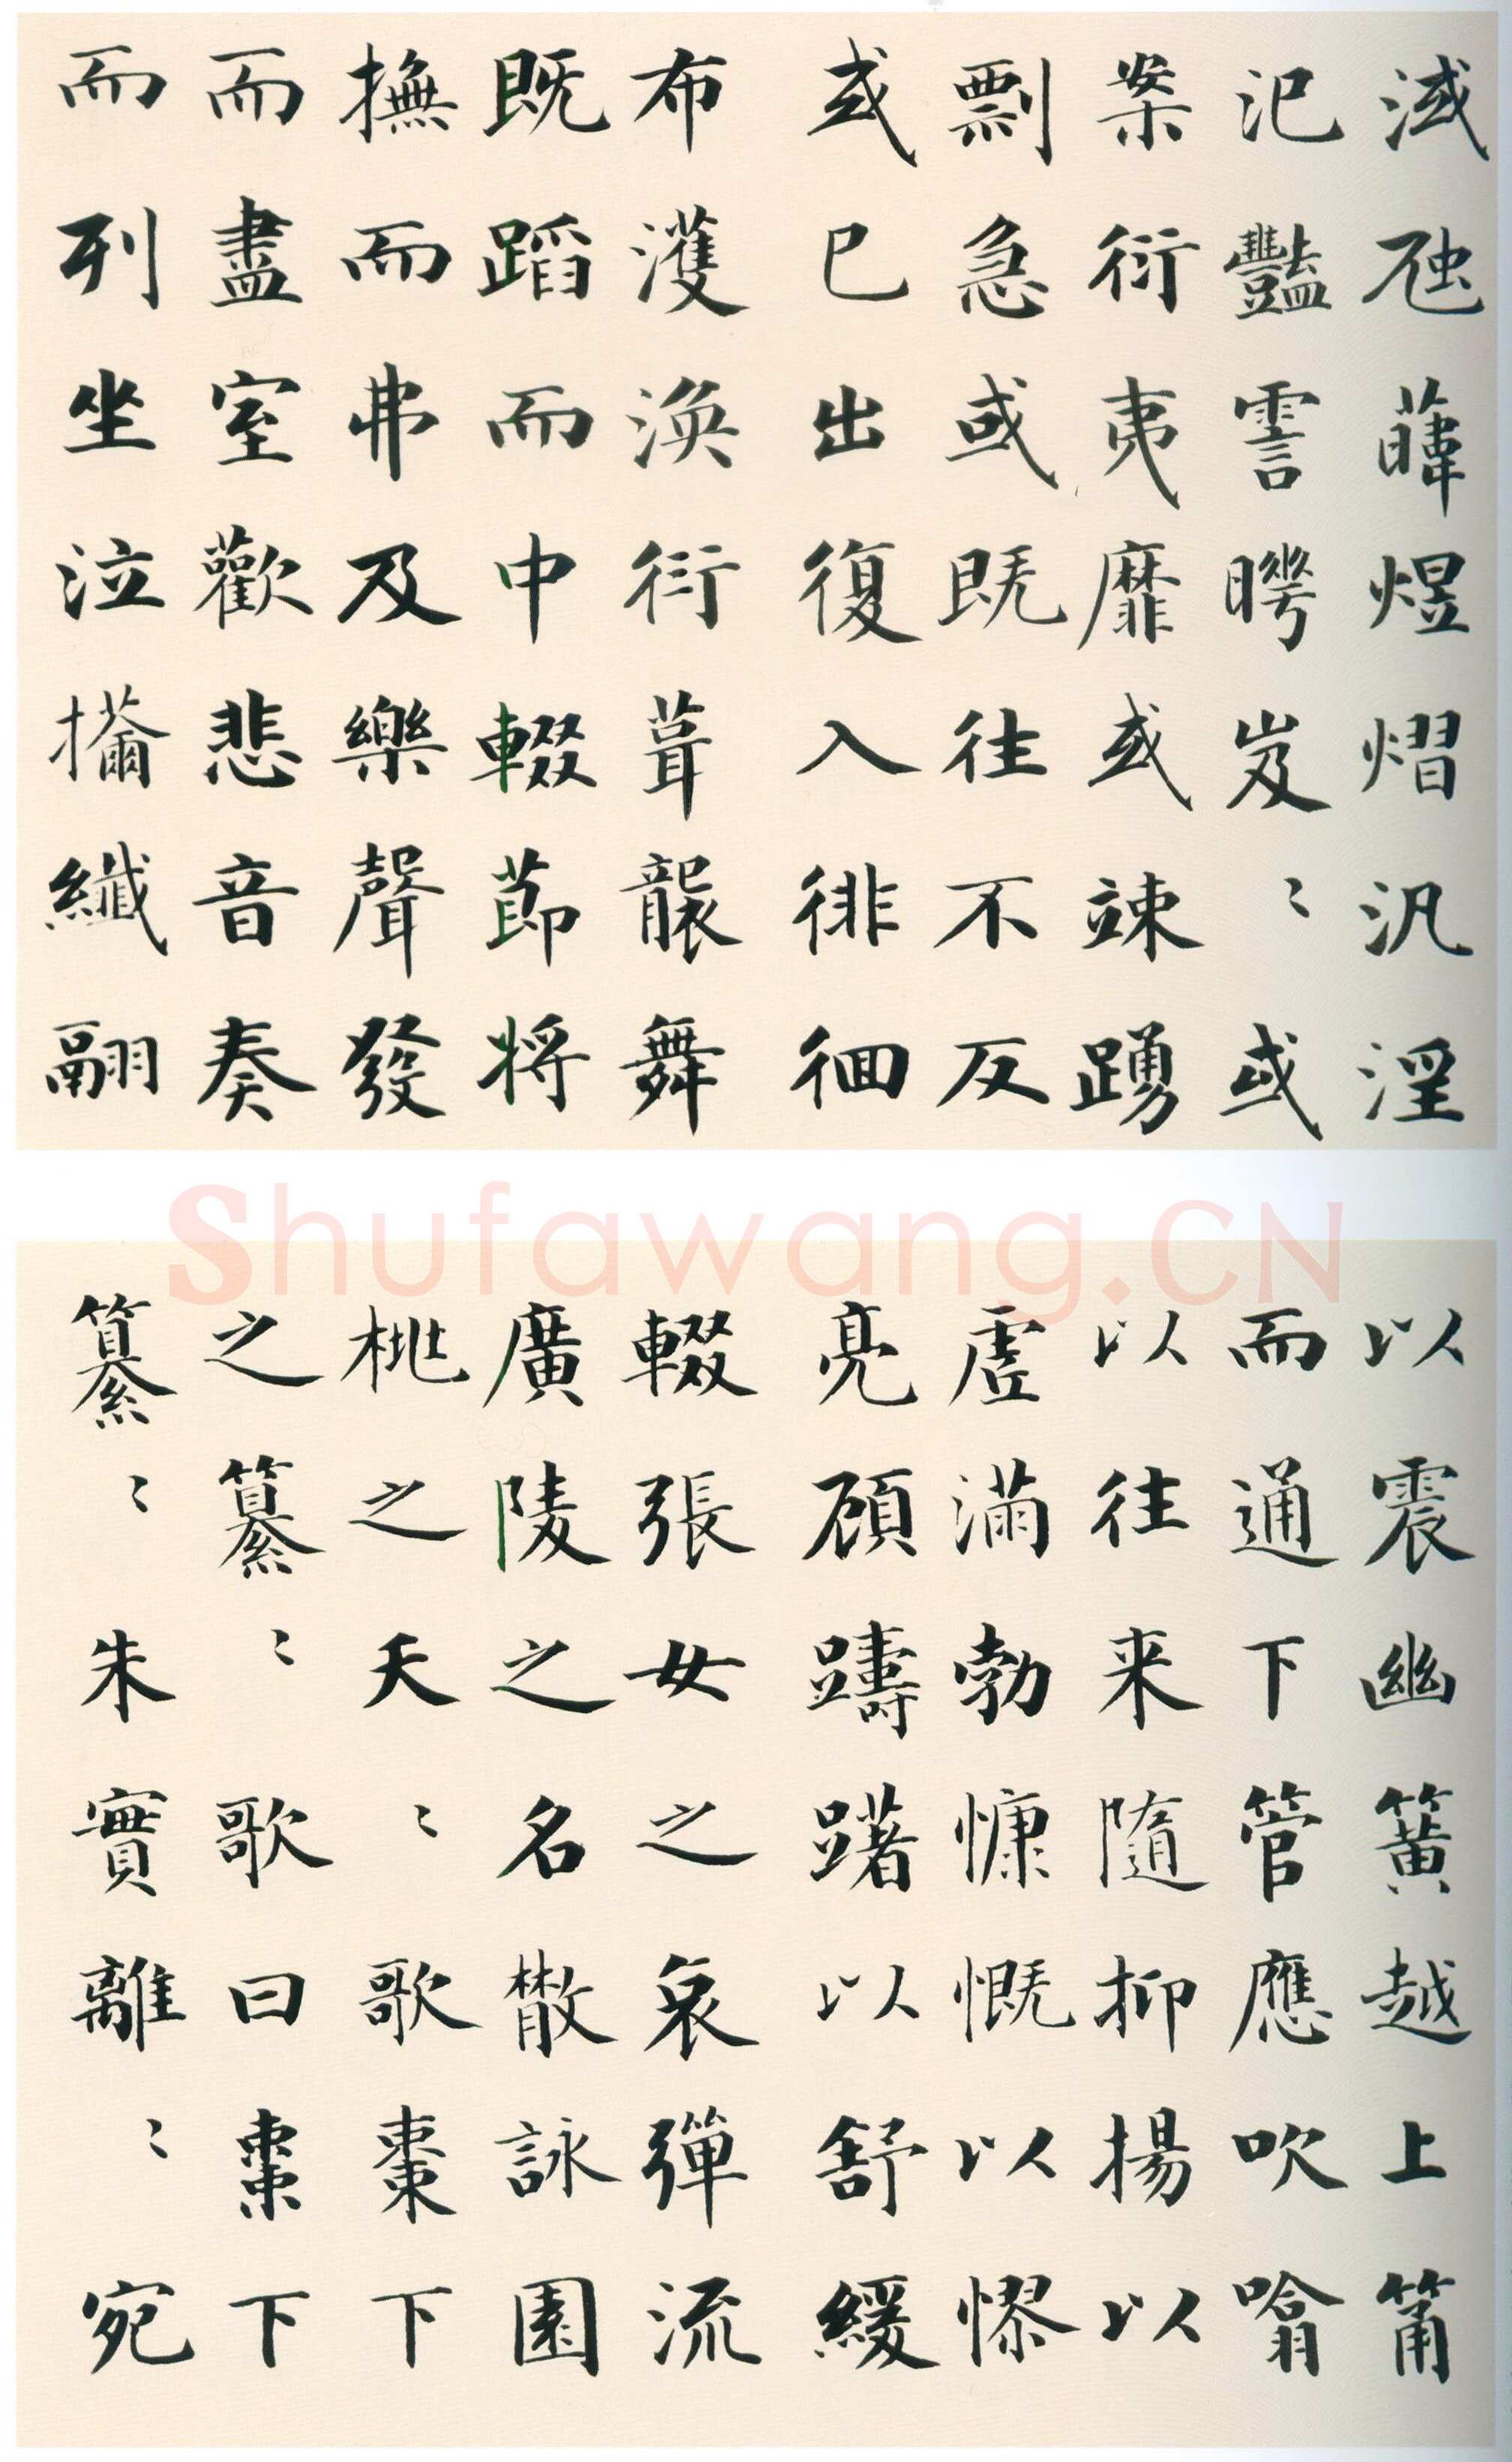 淢虺韡煜熠汎淫
氾豔霅曄岌〻或
案衍夷靡或竦踴
剽急或既往不反
或已出復入徘徊
布濩渙衍葺襲舞
既蹈而中輟節將
撫而弗及樂聲發
而盡室歡悲音奏
而列坐泣纖翮
以震幽簧越上筩
而通下管應吹噏
以往来隨抑揚以
虛滿勃慷慨以憀
亮顧躊躇以舒緩
輟張女之哀彈流
廣陵之名散詠園
桃之夭〻歌棗下
之纂〻歌曰棗下
纂〻朱實離〻宛
Shufawang.CN